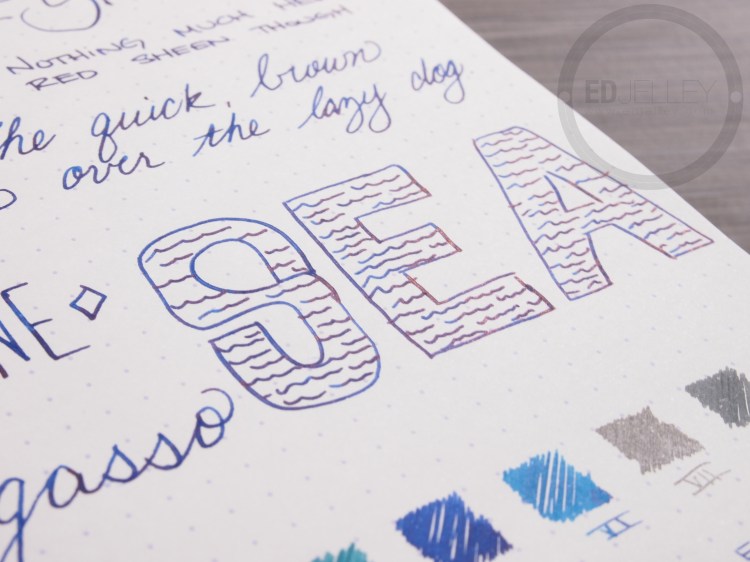 ED JELLEY
NOTHING MUCH HE
RED SHEEN THOUGH
he quick brown
over the lazy dog
SEA
NE
gasso
VII